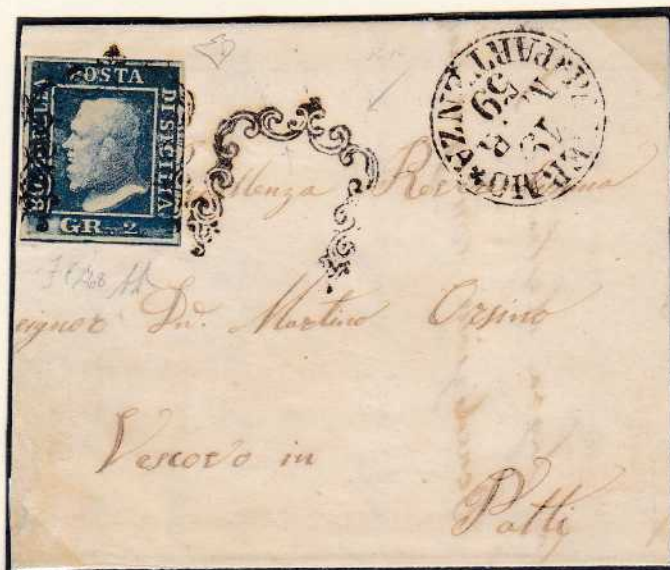 POSTA
BOLLO DELLA
DI SICILIA
GR. 2.
PALERMO * PARTENZA
19
MAR
59
Eccellenza Reverendissima
Monsignor Dn. Martino Orsino
Vescovo in
Patti